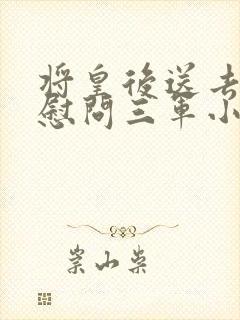 将皇後送去
慰問三軍小
崇山柴